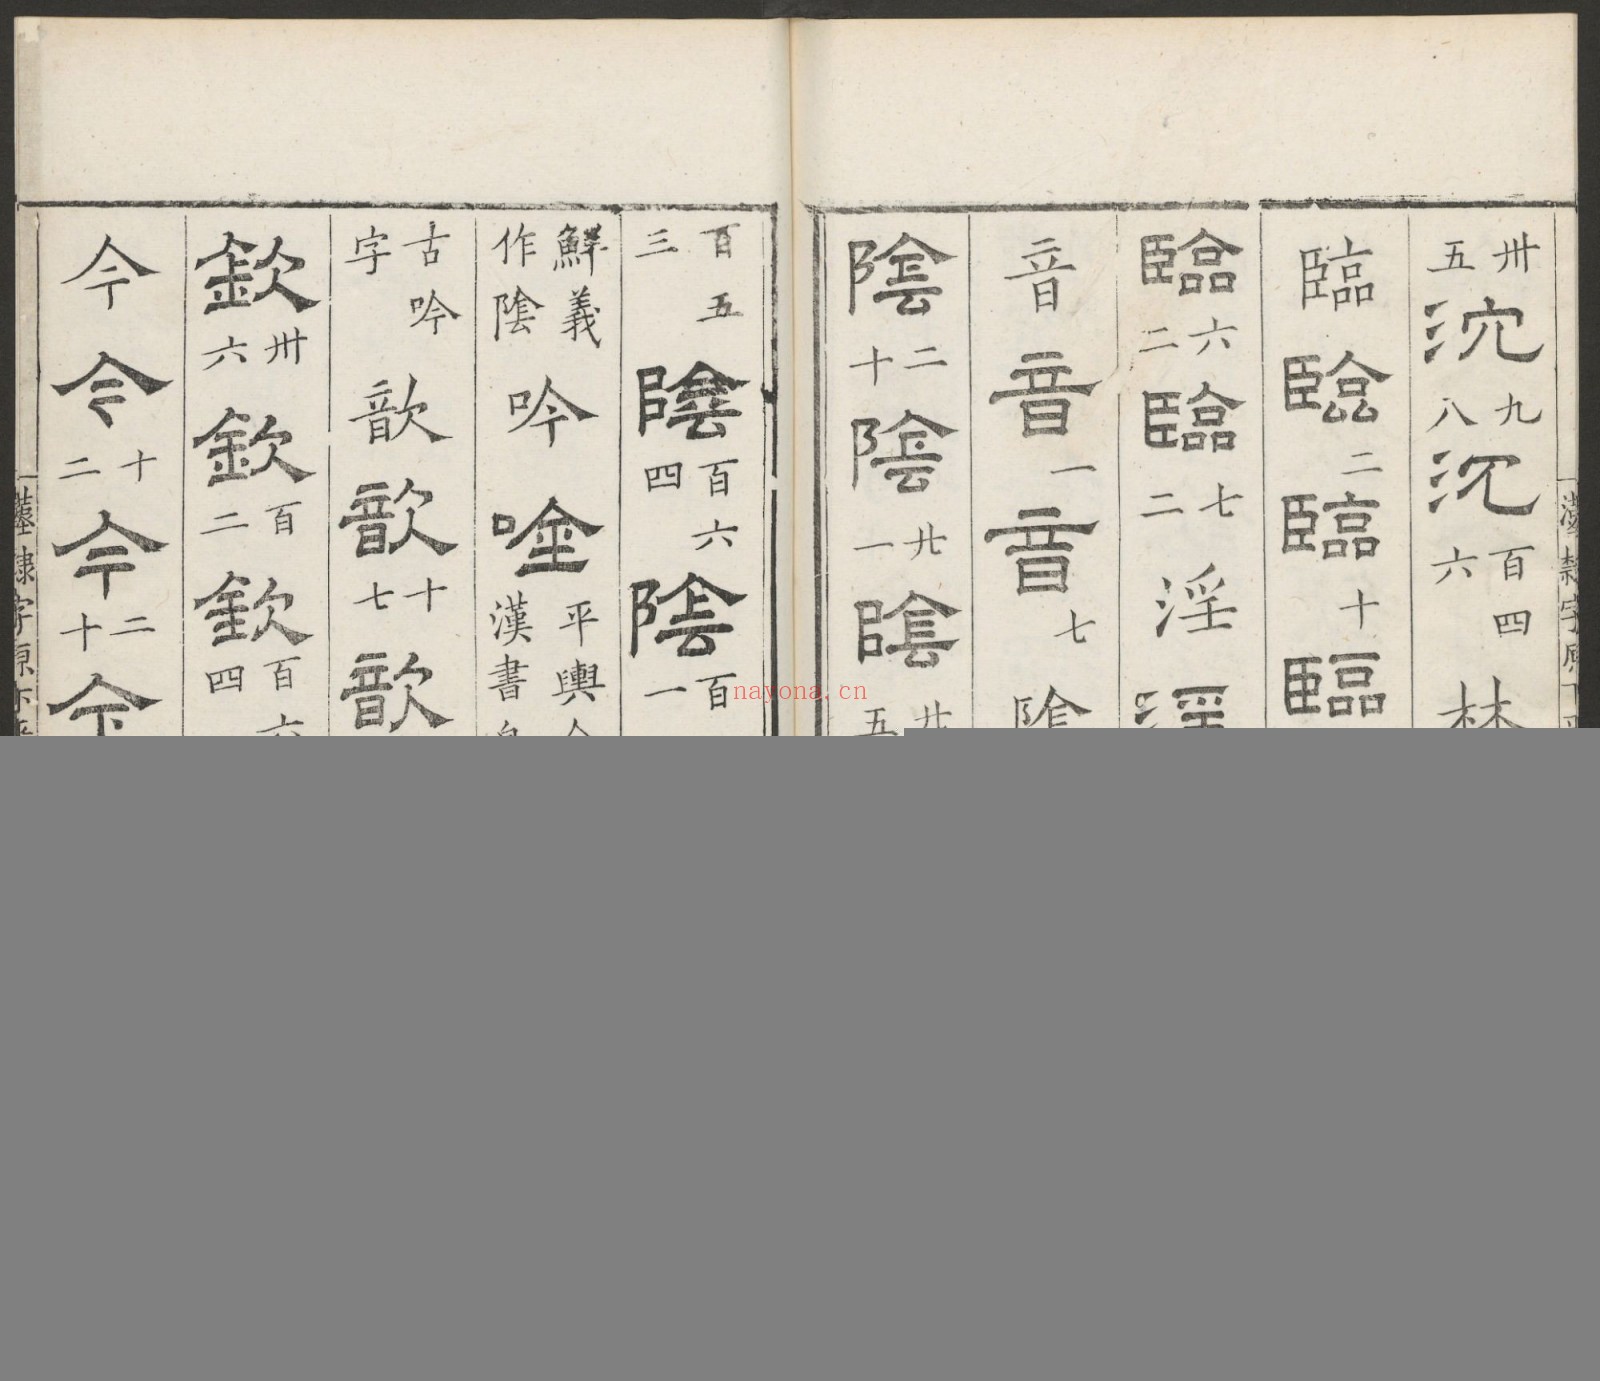 卅五沉九八沉百四六林
臨臨二臨十臨
臨六二臨七二淫淫
音音一音七陰
陰二十陰廿一陰廿五
百五三陰百六四陰百一
鮮義作陰吟唫平輿令漢書
古吟字歆歆十七歆
欽卅六欽百二欽百六四
今今十二今二十今
漢隸字原
漢隸字原
nayona.cn